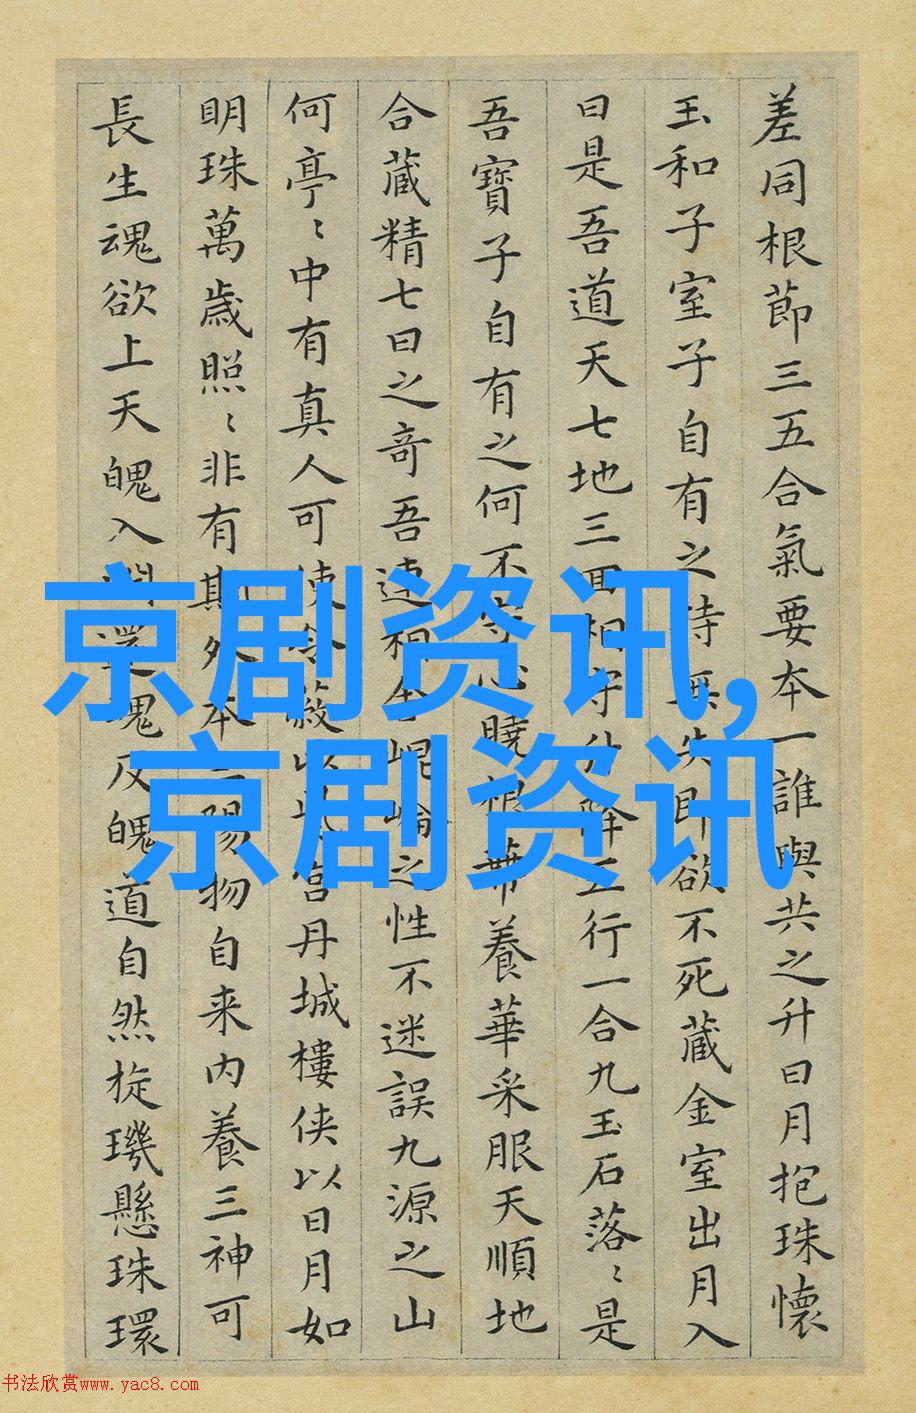 差同根節三五合氣要本一誰與共之升日月抱珠懷
玉和子室子自有之持無失即欲不死藏金室出月入
日是吾道天七地三回相守升降五行一合九玉石落〻是
吾寶子自有之何不守心曉根養華采服天順地
合藏精七日之奇吾連相舍崐崘之性不迷誤九源之山
何亭〻中有真人可使令蔽以宮丹城樓侠以日月如
明珠萬歲照〻非有期外本陽物自来内養三神可
長生魂欲上天魄入淵還魂反魄道自然旋璣懸珠環
京剧资讯,
京剧资讯
书法欣赏www.yac8.com